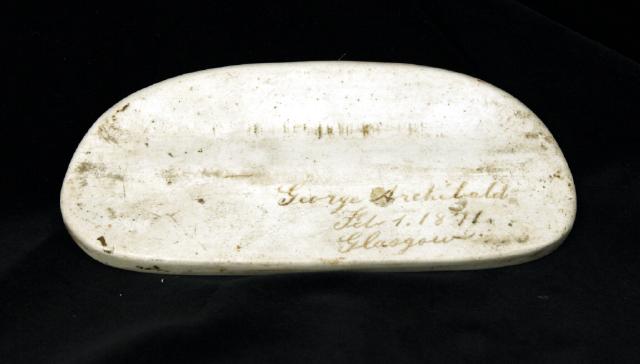 George Archibald
Feb 1. 1871.
Glasgow.